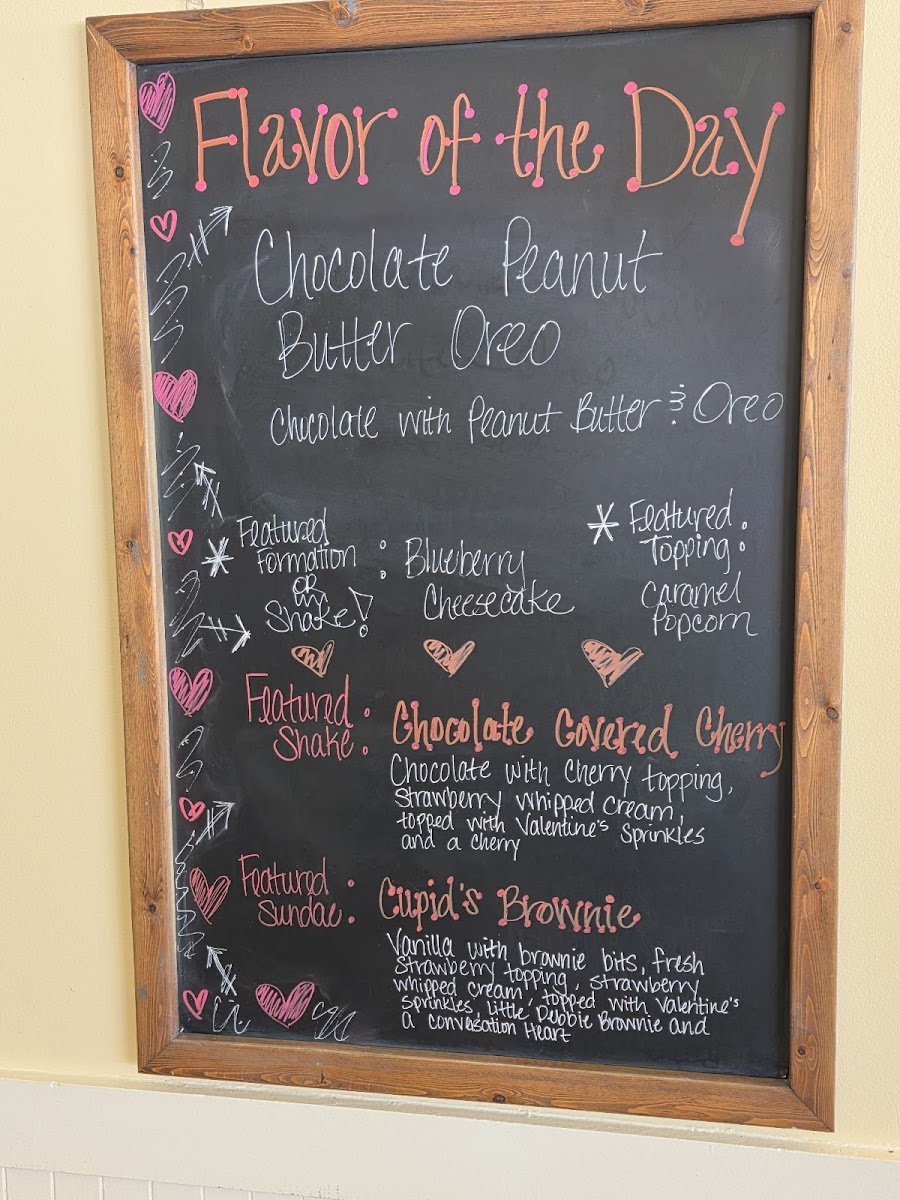 Flavor of the Day
Chocolate Peanut
Butter Oreo
Chocolate with Peanut Butter & Oreo
* Featured
Formation
OR
Shake! :
Blueberry
Cheesecake
* Featured
Topping :
Caramel
Popcorn
Featured
Shake :
Chocolate Covered Cherry
Chocolate with cherry topping,
Strawberry whipped cream,
topped with Valentine's Sprinkles
and a cherry
Featured
Sundae :
Cupid's Brownie
Vanilla with brownie bits, fresh
Strawberry topping, strawberry
whipped cream, topped with Valentine's
Sprinkles, Little Debbie Brownie and
a conversation Heart